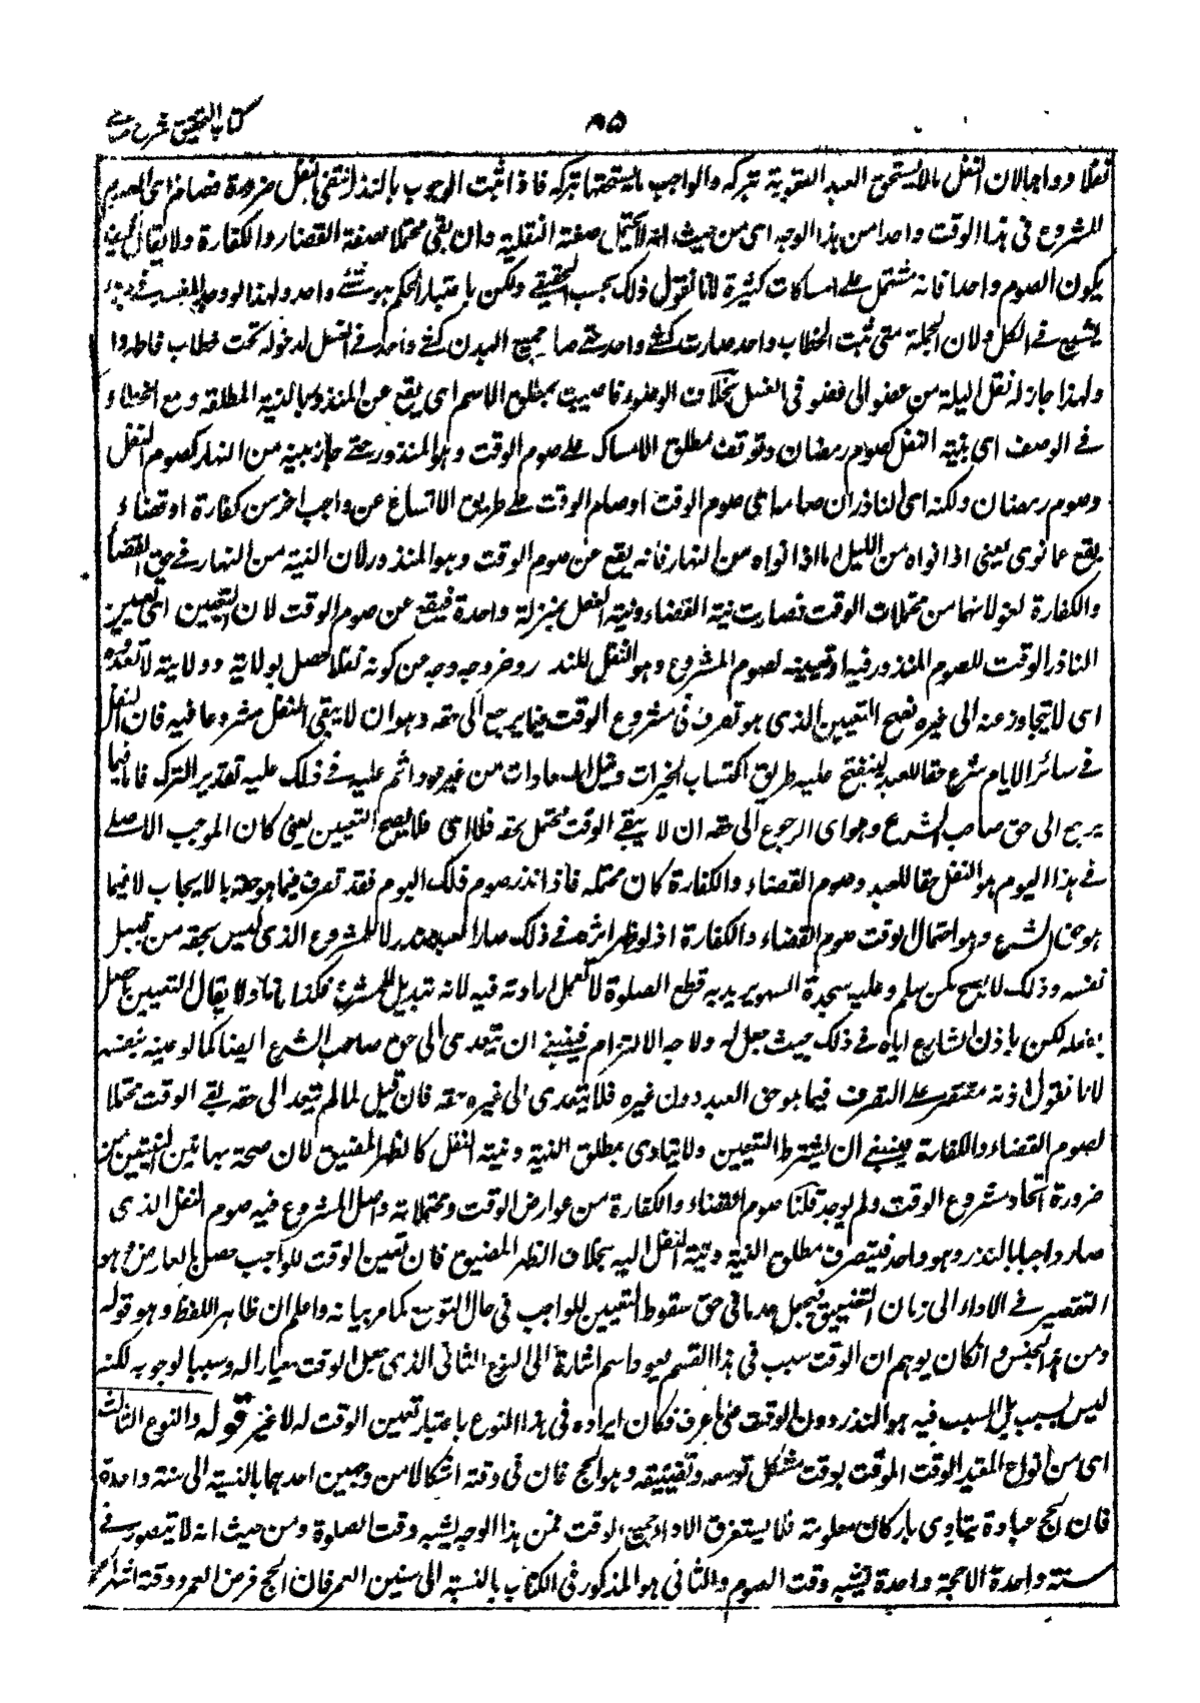 ٨٥ كتاب التحقيق شرح حسامي
نفلا وواجبا لان النفل ما لا يستحق العبد العقوبة بتركه والواجب ما يستحقها بتركه فاذا ثبت الوجوب بالنذر انتفى النفل ضرورة فصار اى الصوم
المشروع فى هذا الوقت واحدا من هذا الوجه اى من حيث انه لا يحتمل صفة النفلية وان بقى محتملا لصفة القضاء والكفارة ولا يقال كيف
يكون الصوم واحدا فانه مشتمل على امساكات كثيرة لانا نقول ذلك بحسب الحقيقى ولكن باعتبار الحكم هو شئ واحد ولهذا لو وجد المفسد فى جزء
يشيع فى الكل ولان الجملة متى ثبت الخطاب واحد صارت كشئ واحد حتى صار جميع البدن كشئ واحد فى الغسل لدخوله تحت خطاب فاطهروا
ولهذا جاز له نقل البلة من عضو الى عضو فى الغسل بخلاف الوضوء فاصيب بمطلق الاسم اى يقع عن المنذور بالنية المطلقة ومع الخطاء
فى الوصف اى بنية النفل كصوم رمضان وتوقف مطلق الامساك على صوم الوقت وهو المنذور حتى جاز بنية من النهار كصوم النفل
وصوم رمضان ولكنه اى الناذر ان صامه اى صوم الوقت او صام الوقت على طريق الاتساع عن واجب اخر من كفارة او قضاء
يقع عما نوى يعنى اذا نواه من الليل اما اذا نواه من النهار فانه يقع عن صوم الوقت وهو المنذور لان النية من النهار فى حق القضاء
والكفارة لغو لانهما من محتملات الوقت فصارت نية القضاء ونية النفل بمنزلة واحدة فيقع عن صوم الوقت لان التعيين اى تعيين
الناذر الوقت للصوم المنذور فيه او تعيينه لصوم المشروع وهو النفل للنذر وخروجه من كونه نفلا حصل بولايته وولايته لا تعدوه
اى لا يتجاوز عنه الى غيره فصح التعيين الذى هو تصرف فى مشروع الوقت فيما يرجع الى حقه وهو ان لا يبقى النفل مشروعا فيه فان النفل
فى سائر الايام شرع حقا للعبد لينفتح عليه طريق اكتساب الخيرات ونيل السعادات من غير حرج واثم عليه فى ذلك على تقدير الترك فاما فيما
يرجع الى حق صاحب الشرع وهو اى الرجوع الى حقه ان لا يبقى الوقت محتمل بحقه فلا اى فلا يصح التعيين يعنى كان الموجب الاصلى
فى هذا اليوم هو النفل حقا للعبد وصوم القضاء والكفارة كان محتمله فاذا نذر صوم ذلك اليوم فقد تصرف فيما هو حقه بالايجاب لا فيما
هو حق الشرع وهو احتمال الوقت صوم القضاء والكفارة اذ لو ظهر اثره فى ذلك صار العبد مبدلا للمشروع الذى ليس بحقه من قبل
نفسه وذلك لا يصح كمن سلم وعليه سجدة السهو يريد به قطع الصلوة لا تعمل ارادته فيه لانه تبديل للمشروع فكذا هذا ولا يقال التعيين حصل
بفعله لكن باذن الشارع اياه فى ذلك حيث جعل له ولاية الالتزام فينبغى ان يتعدى الى حق صاحب الشرع ايضا كما لو عينه بنفسه
لانا نقول اذنه مقتصر على التصرف فيما هو حق العبد دون غيره فلا يتعدى الى غيره حقه فان قيل لما لم يتعد الى حقه بقى الوقت محتملا
لصوم القضاء والكفارة فينبغى ان يشترط التعيين ولا يتادى بمطلق النية ونية النفل كالظهر المضيق لان صحة بهاتين النيتين من
ضرورة اتحاد مشروع الوقت ولم يوجد قلنا صوم القضاء والكفارة من عوارض الوقت ومحتملاته واصل المشروع فيه صوم النفل الذى
صار واجبا بالنذر وهو واحد فيتصرف مطلق النية ونية النفل اليه بخلاف الظهر المضيق فان تعين الوقت للواجب حصل بالعارض وهو
التقصير فى الاداء الى زمان التضييق فيجعل عدما فى حق سقوط التعيين للواجب فى حال التوسع كما مر بيانه واعلم ان ظاهر اللفظ وهو قوله
ومن هذا الجنس وان كان يوهم ان الوقت سبب فى هذا القسم يعود اسم اشارة الى النوع الثانى الذى جعل الوقت معيارا له وسببا لوجوبه لكنه
ليس بسبب بل السبب فيه هو النذر دون الوقت على ما عرف فكان ايراده فى هذا النوع باعتبار تعين الوقت له لا غير قوله والنوع الثالث
اى من انواع المقيد الوقت الموقت بوقت مشكل توسعه وتضيقه وهو الحج فان فى وقته اشكالا من وجهين احدهما بالنسبة الى سنة واحدة
فان الحج عبادة يتادى باركان معلومة فلا يستغرق الاداء جميع الوقت فمن هذا الوجه يشبه وقت الصلوة ومن حيث انه لا يتصور فى
سنة واحدة الا حجة واحدة يشبه وقت الصوم والثانى هو المذكور فى الكتاب بالنسبة الى سنين العمر فان الحج فرض العمر ووقته اشهر الحج